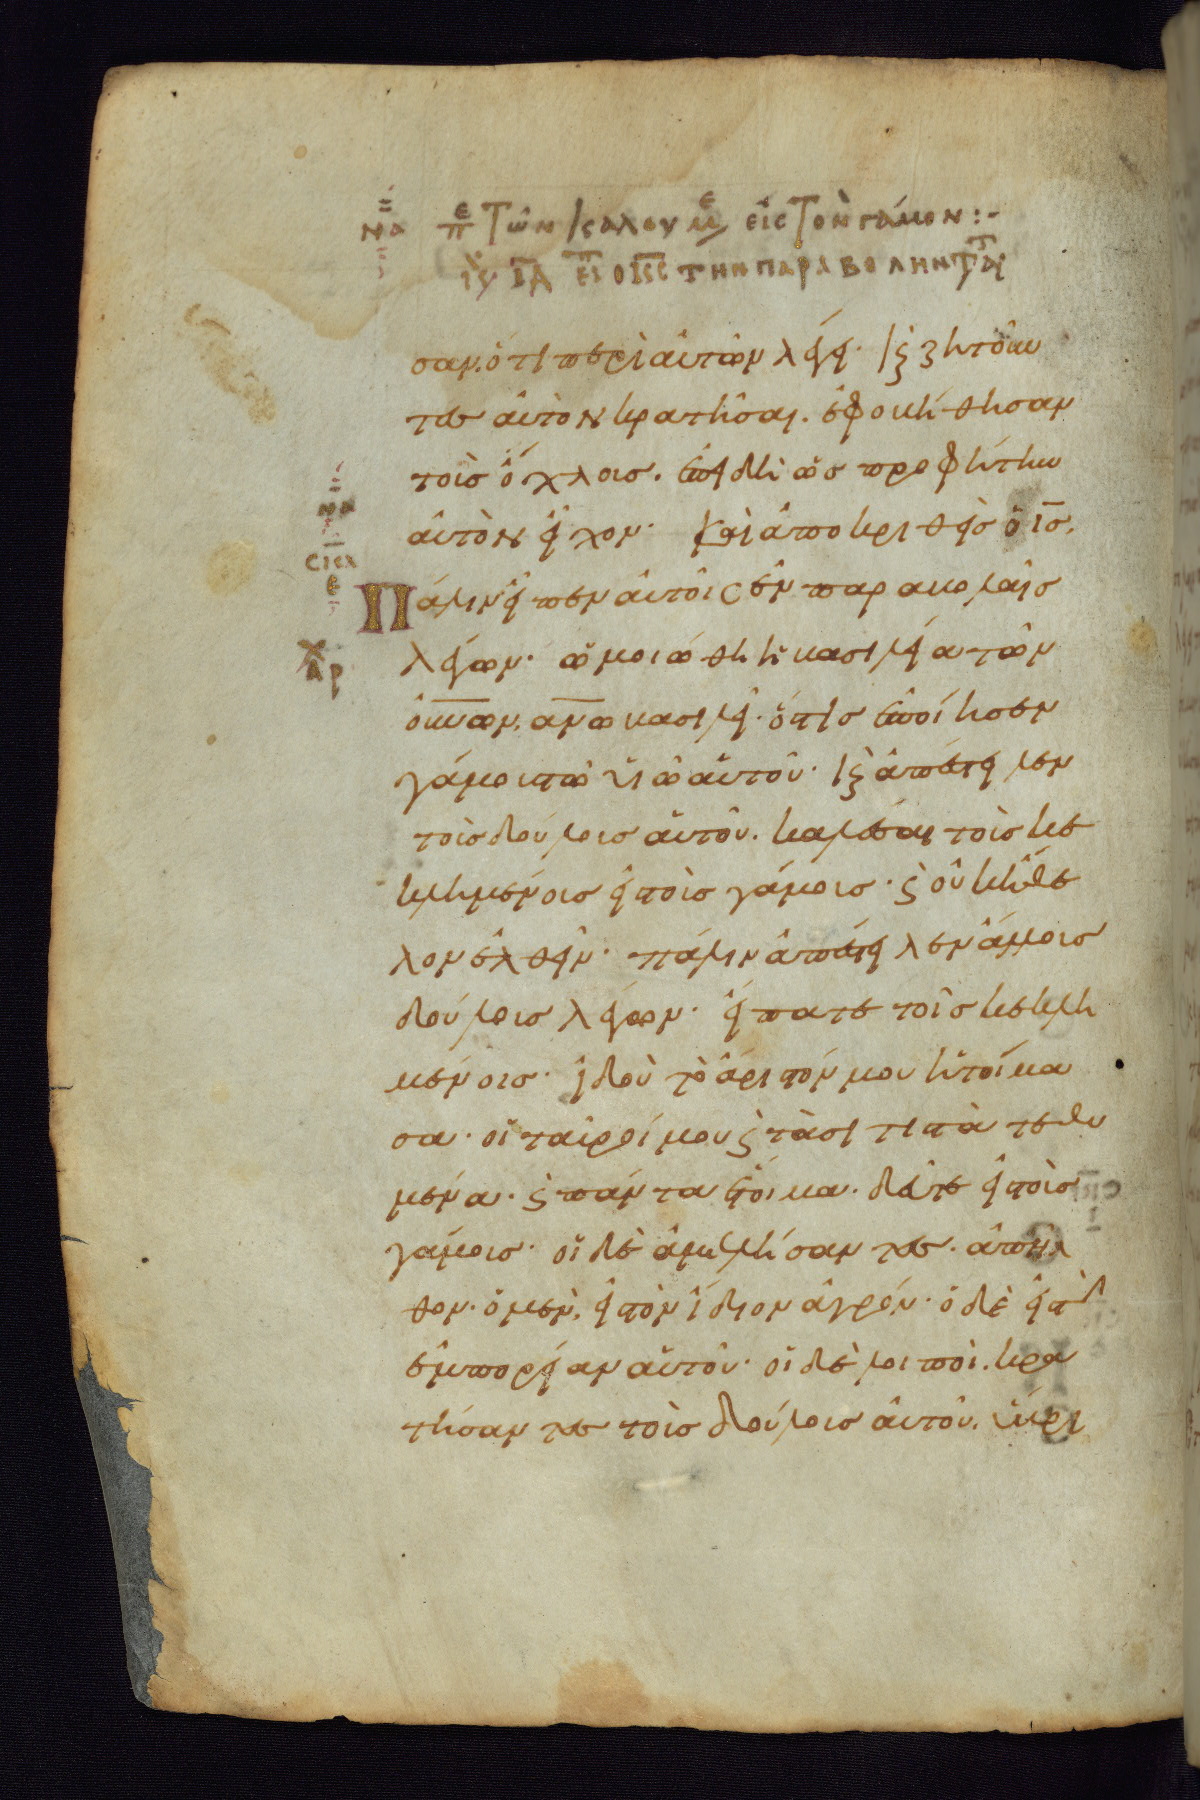 ΝΑ περι Τῶν καλουμε εἰς Τὸν γάμον :-
ΤΗΝ ΠΑΡΑΒΟΛΗΝ Τ
σαν. ὅτι περὶ αὐτῶν λέγει· κ ζητοῦν
τες αὐτὸν κρατῆσαι. ἐφοβήθησαν
τοὺς ὄχλους. ἐπειδὴ ὡς προφήτην
αὐτὸν εἶχον· Καὶ ἀποκριθεὶς ὁ ις.
Πάλιν εἶπεν αὐτοῖς ἐν παραβολαῖς
λέγων· ὡμοιώθη ἡ βασιλεία τῶν
ουνων, ανω βασιλεῖ· ὅστις ἐποίησεν
γάμους τῶ υἱῶ αὐτοῦ· κ ἀπέστειλεν
τοὺς δούλους αὐτοῦ. καλέσαι τοὺς κε
κλημένους εἰς τοὺς γάμους· κ οὐκ ἤθε
λον ἐλθεῖν· πάλιν ἀπέστειλεν ἄλλους
δούλους λέγων· εἴπατε τοῖς κεκλη
μένοις· ἰδοὺ τὸ ἄριστόν μου ἡτοίμα
σα· οἱ ταῦροί μου κ τὰ σιτιστὰ τεθυ
μένα· κ πάντα ἕτοιμα· δεῦτε εἰς τοὺς
γάμους· οἱ δὲ ἀμελήσαντες· ἀπηλ
θον· ὁ μὲν, εἰς τὸν ἴδιον ἀγρόν· ὁ δὲ εἰς τὴν
ἐμπορείαν αὐτοῦ· οἱ δὲ λοιποὶ. κρα
τήσαντες τοὺς δούλους αὐτοῦ. ὕβρι